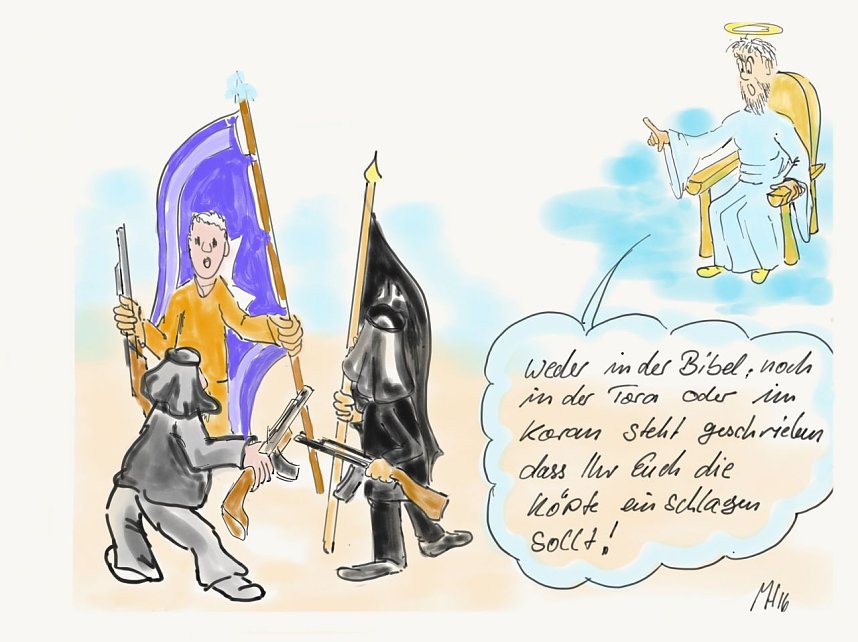 Weder in der Bibel, noch
in der Tora oder im
Koran steht geschrieben
dass Ihr Euch die
Köpfe einschlagen
sollt!
MH16